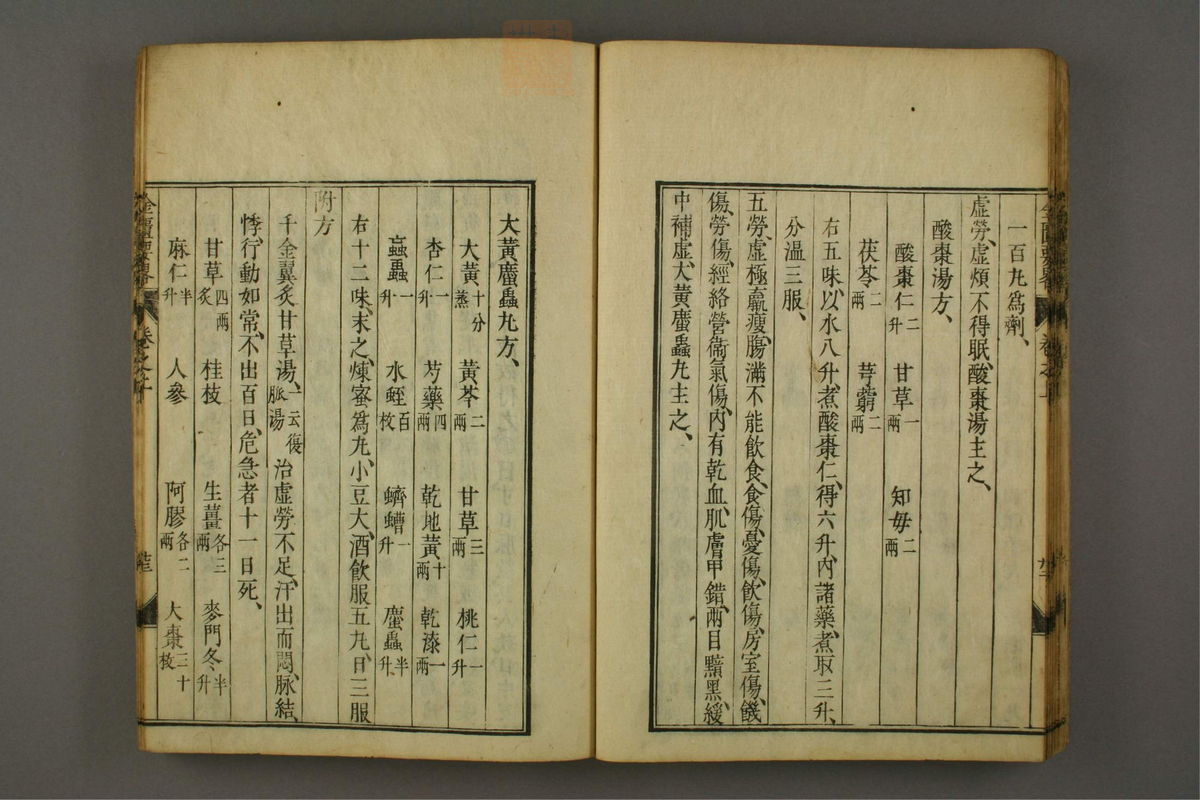 一百丸為劑、
虛勞、虛煩不得眠、酸棗湯主之、
酸棗湯方、
酸棗仁二升 甘草一兩 知母二兩
茯苓二兩 芎藭二兩
右五味以水八升、煮酸棗仁、得六升、內諸藥、煮取三升、
分溫三服、
五勞、虛極羸瘦、腸滿不能飲食、食傷、憂傷、飲傷、房室傷、饑
傷、勞傷、經絡營衞氣傷、內有乾血、肌膚甲錯、兩目黯黑、緩
中補虛、大黃䗪蟲丸主之、
大黃䗪蟲丸方、
大黃十分蒸 黃芩二兩 甘草三兩 桃仁一升
杏仁一升 芍藥四兩 乾地黃十兩 乾漆一兩
蝱蟲一升 水蛭百枚 蠐螬一升 䗪蟲半升
右十二味、末之、煉蜜為丸、小豆大、酒飲服五丸、日三服
附方
千金翼炙甘草湯、一云復脈湯 治虛勞不足、汗出而悶、脉結、
悸、行動如常、不出百日、危急者十一日死、
甘草四兩炙 桂枝 生薑各三兩 麥門冬半升
麻仁半升 人參 阿膠各二兩 大棗三十枚